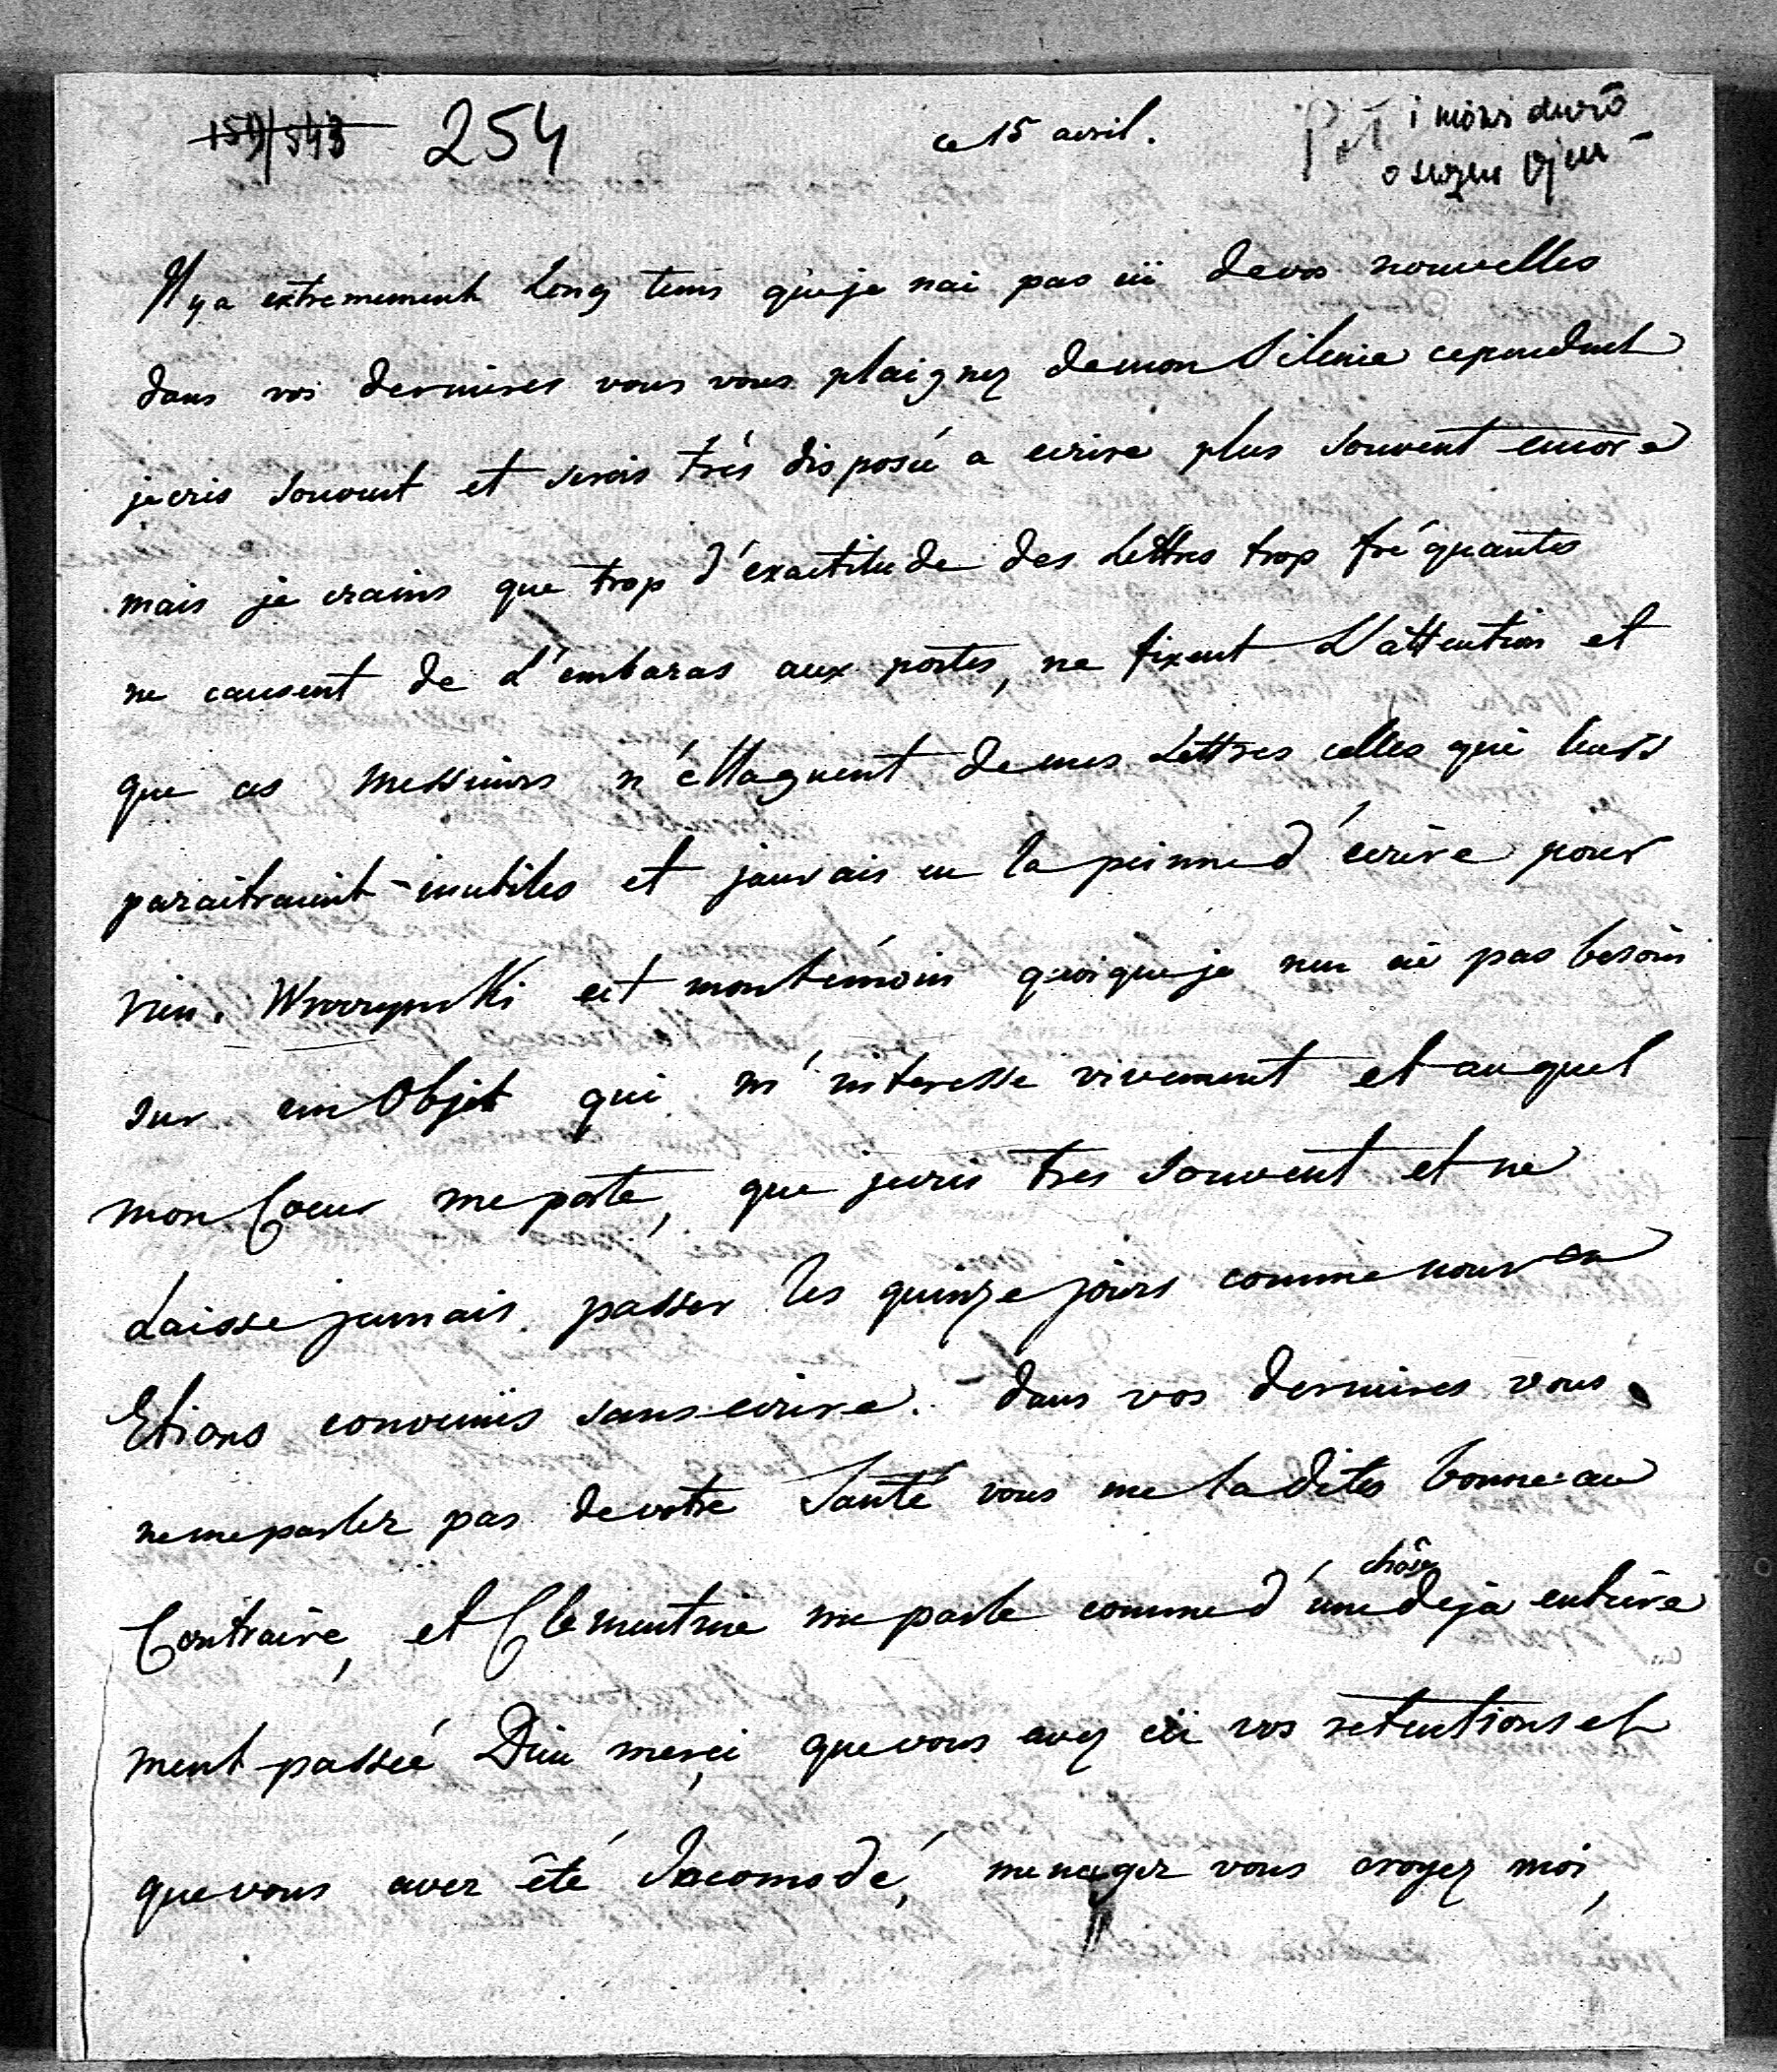 159/543 254 ce 15 avril.
Il y a extremement Long tems que je nai pas eü de vos nouvelles
dans vos dernieres vous vous plaignez de mon Silence cependent
jecris souvent et serois trés disposé a ecrire plus souvent encore
mais je crains que trop d'exactitude des Lettres trop fréquantes
ne causent de l'embaras aux postes, ne fixent L'attention et
que ces messieurs n'éllaguent de mes Lettres celles qui leurs
paraitraient inutiles et jaurais eu la peinne d'écrire pour
rien. est mon témoin quoique je nen aie pas besoin
sur un Objet qui m'interesse vivement et auquel
mon Coeur me porte, que jecris tres souvent et ne
Laisse jamais passer les quinze jours comme nous en
Etions convenüs sans ecrire. - dans vos dernieres vous
ne me parlez pas de votre Santé vous me la dites bonne au
Contraire, et Clementine me parle comme d'une chose deja entiere
ment passée Dieu merci que vous avez eü vos retentions et
que vous avez été Incomodé, menager vous croyez moi,